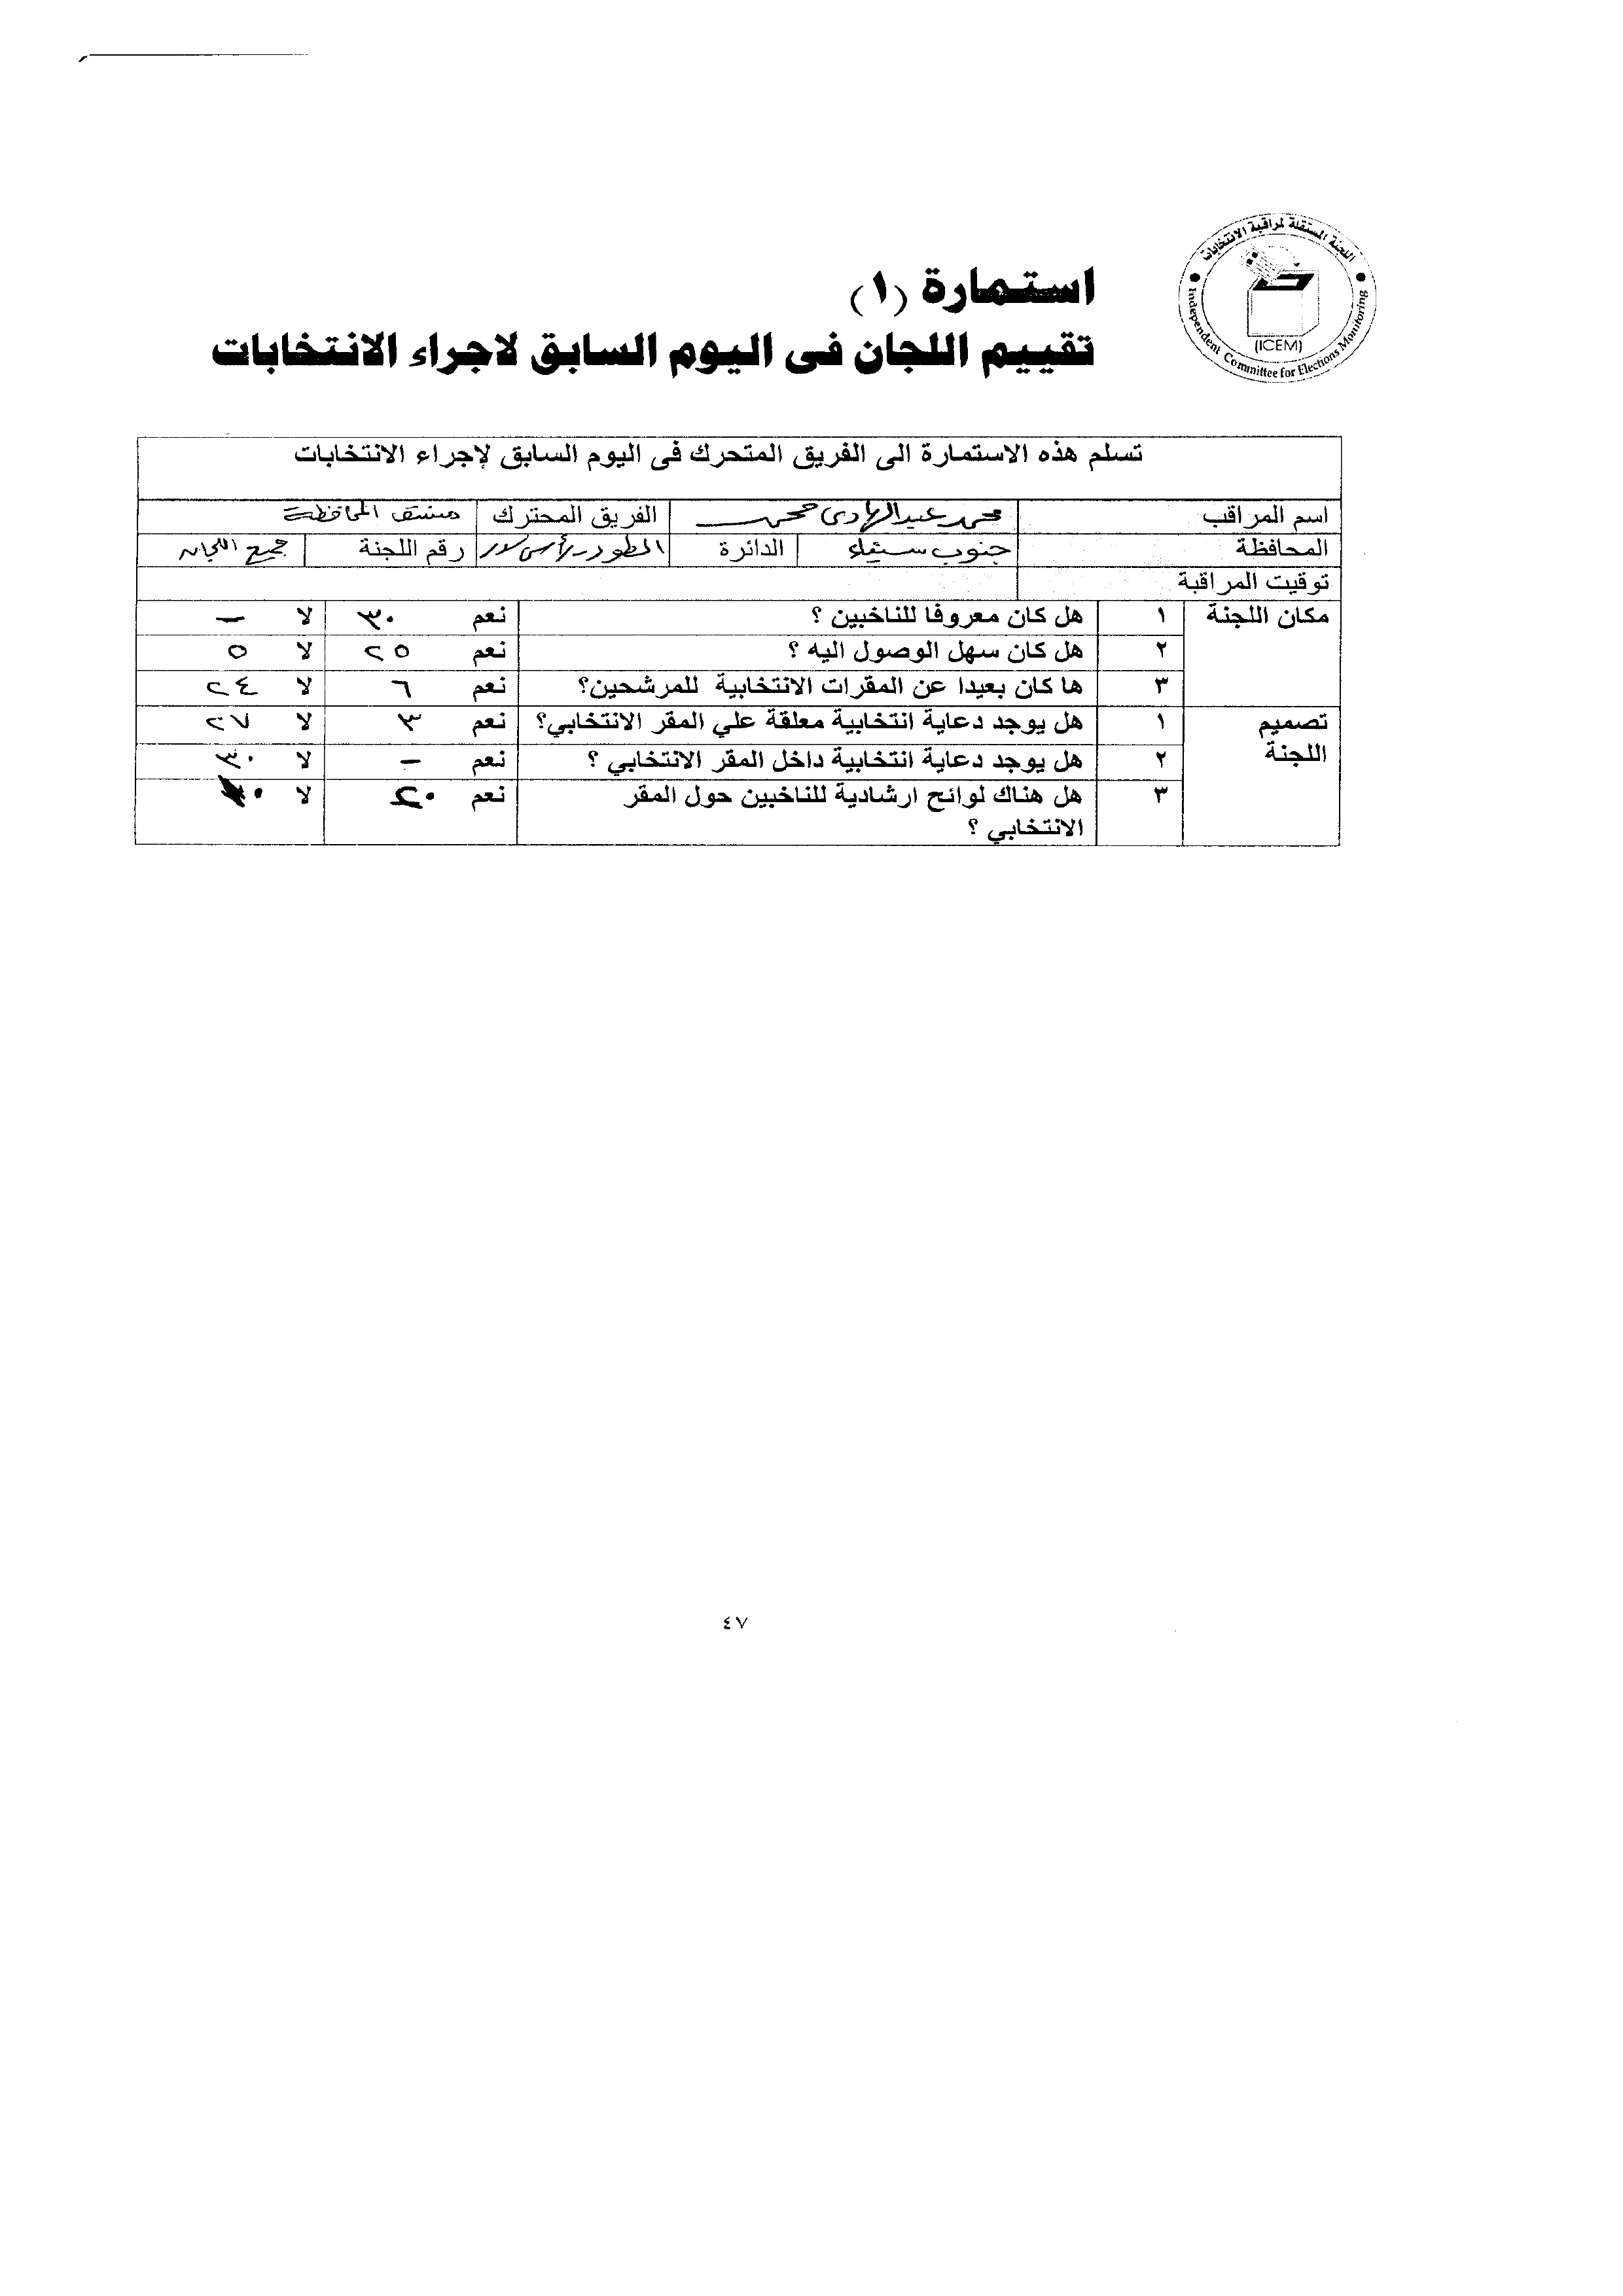 اللجنة المستقلة لمراقبة الانتخابات
(ICEM)
Independent Committee for Elections Monitoring
استمارة (١)
تقييم اللجان فى اليوم السابق لاجراء الانتخابات
تسلم هذه الاستمارة الى الفريق المتحرك فى اليوم السابق لإجراء الانتخابات
اسم المراقب محمد عبد الهادى محمد الفريق المحترك منسق المحافظة
المحافظة جنوب سيناء الدائرة الطور - رأس سدر رقم اللجنة جميع اللجان
توقيت المراقبة
مكان اللجنة ١ هل كان معروفا للناخبين ؟ نعم ٣٠ لا –
٢ هل كان سهل الوصول اليه ؟ نعم ٢٥ لا ٥
٣ ها كان بعيدا عن المقرات الانتخابية للمرشحين؟ نعم ٦ لا ٢٤
تصميم اللجنة ١ هل يوجد دعاية انتخابية معلقة علي المقر الانتخابي؟ نعم ٣ لا ٢٧
٢ هل يوجد دعاية انتخابية داخل المقر الانتخابي ؟ نعم – لا ٣٠
٣ هل هناك لوائح ارشادية للناخبين حول المقر نعم ٢٠ لا
الانتخابي ؟
٤٧